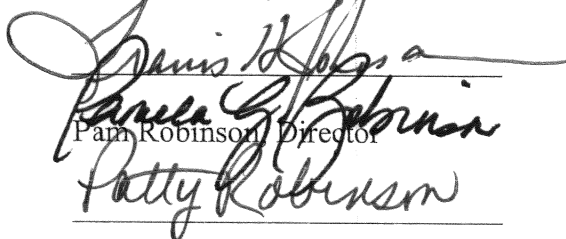 Travis H Robinson
Pamela G Robinson
Pam Robinson, Director
Patty Robinson